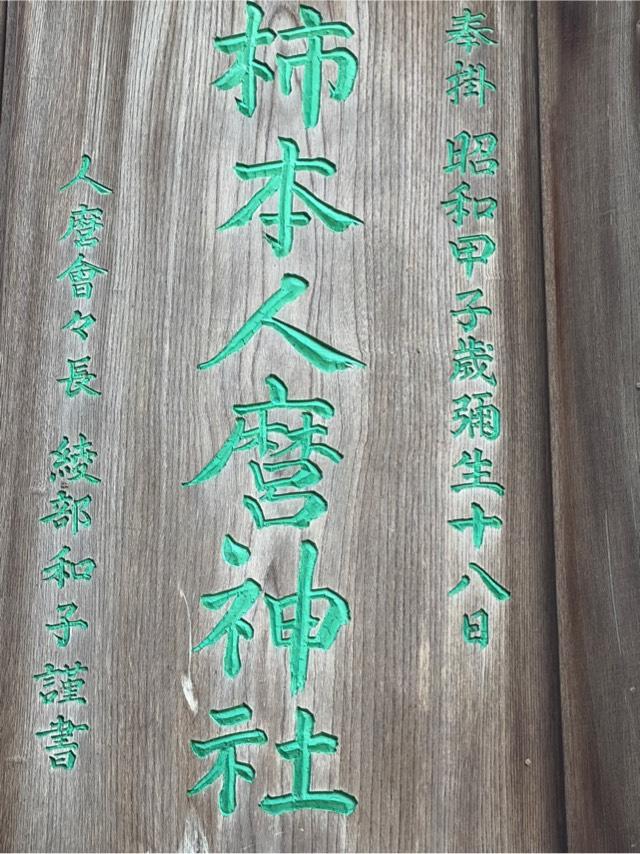 奉掛 昭和甲子歳彌生十八日
柿本人麿神社
人麿會々長 綾部和子謹書